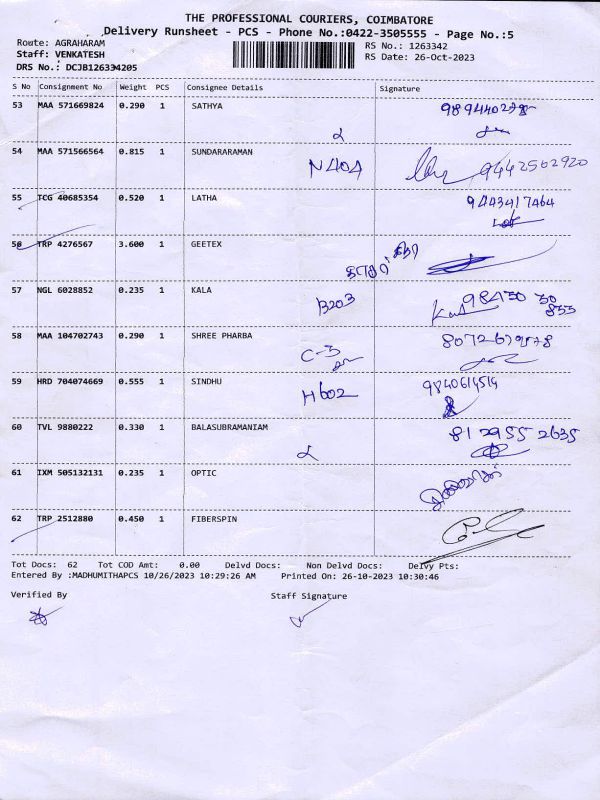 THE PROFESSIONAL COURIERS, COIMBATORE
Delivery Runsheet - PCS - Phone No.:0422-3505555 - Page No.:5
Route: AGRAHARAM
RS No.: 1263342
Staff: VENKATESH
RS Date: 26-Oct-2023
DRS No.: DCJB126334205
S No Consignment No Weight PCS Consignee Details Signature
53 MAA 571669824 0.290 1 SATHYA
54 MAA 571566564 0.815 1 SUNDARARAMAN N404 9442502920
55 TCG 40685354 0.520 1 LATHA 9443417464
56 TRP 4276567 3.600 1 GEETEX
57 NGL 6028852 0.235 1 KALA B203 98430 30 833
58 MAA 104702743 0.290 1 SHREE PHARBA C-3
59 HRD 704074669 0.555 1 SINDHU H602 9840614514
60 TVL 9880222 0.330 1 BALASUBRAMANIAM 812955 2635
61 IXM 505132131 0.235 1 OPTIC
62 TRP 2512880 0.450 1 FIBERSPIN
Tot Docs: 62 Tot COD Amt: 0.00 Delvd Docs: Non Delvd Docs: Delvy Pts:
Entered By :MADHUMITHAPCS 10/26/2023 10:29:26 AM Printed On: 26-10-2023 10:30:46
Verified By Staff Signature